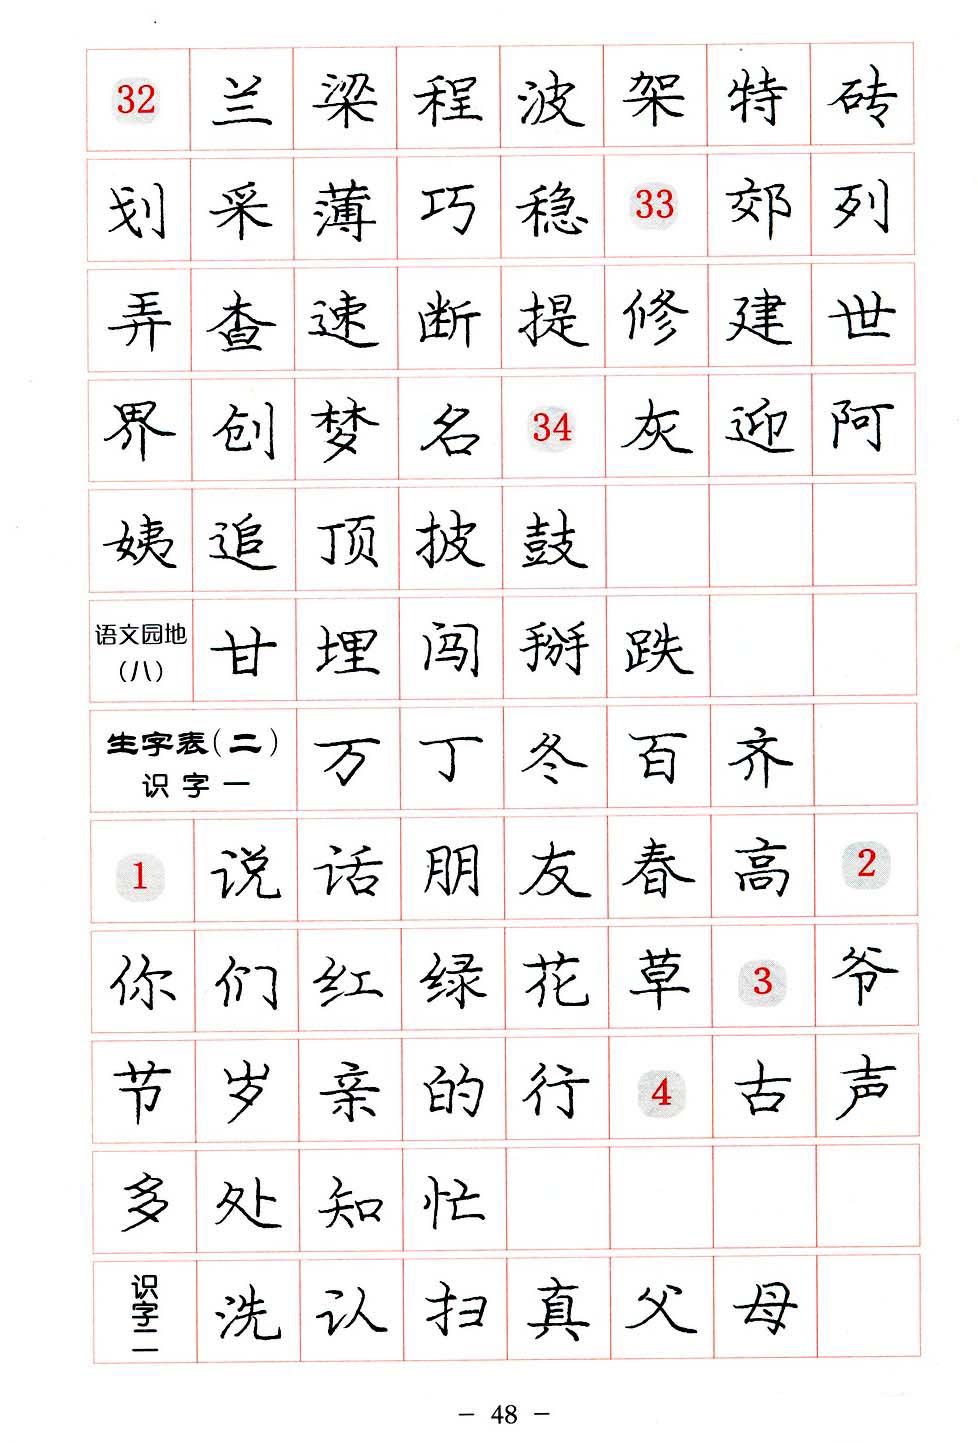 32 兰 梁 程 波 架 特 砖
划 采 薄 巧 稳 33 郊 列
弄 查 速 断 提 修 建 世
界 创 梦 名 34 灰 迎 阿
姨 追 顶 披 鼓
语文园地(八) 甘 埋 闯 掰 跌
生字表(二) 识字一 万 丁 冬 百 齐
1 说 话 朋 友 春 高 2
你 们 红 绿 花 草 3 爷
节 岁 亲 的 行 4 古 声
多 处 知 忙
识字二 洗 认 扫 真 父 母
- 48 -